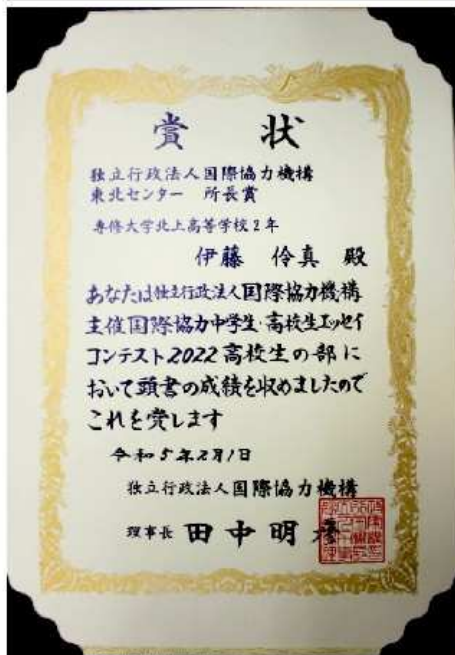 賞状
独立行政法人国際協力機構
東北センター 所長賞
専修大学北上高等学校2年
伊藤 伶真 殿
あなたは独立行政法人国際協力機構
主催国際協力中学生・高校生エッセイ
コンテスト2022高校生の部に
おいて頭書の成績を収めましたので
これを賞します
令和5年2月1日
独立行政法人国際協力機構
理事長 田中明彦